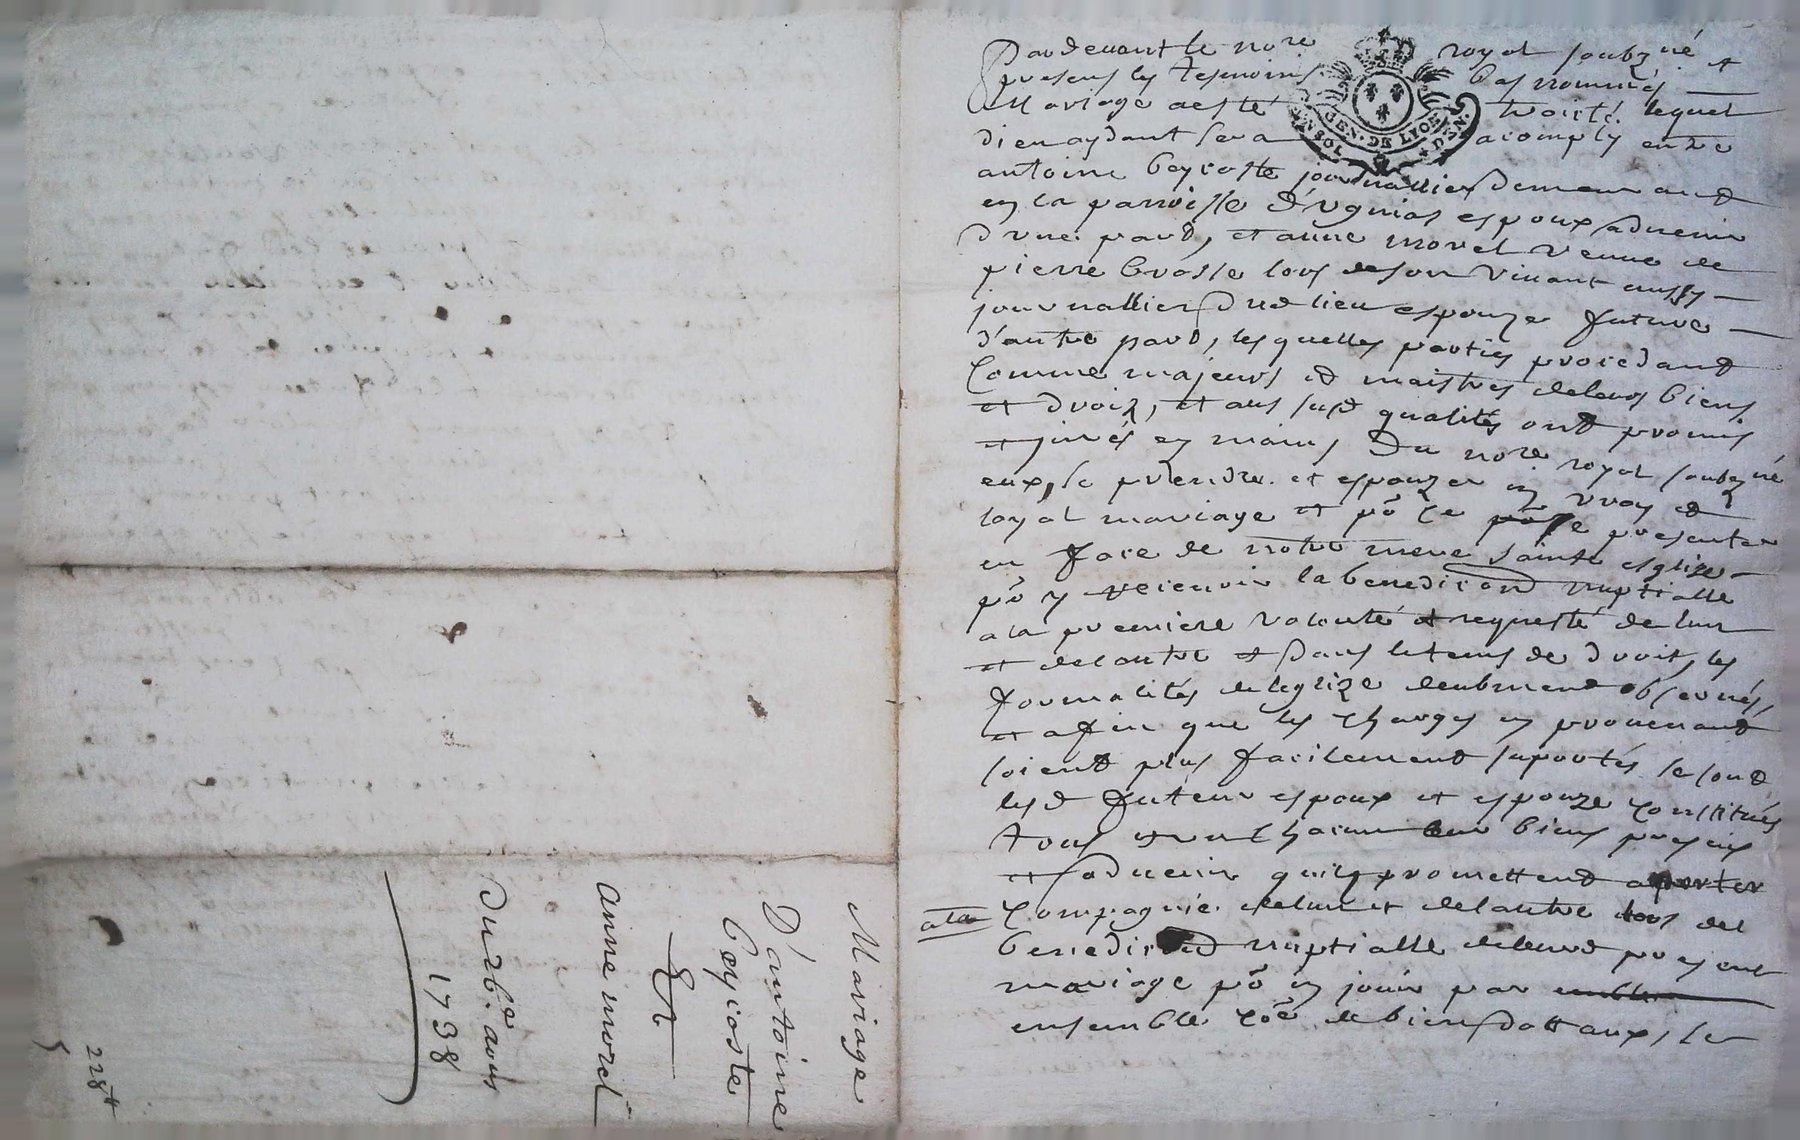 Pardevant le nore royal soubzné et
presens les tesmoins bas nommés
Mariage a esté traité lequel
dieu aydant sera acomply entre
antoine Coycoste journallier demeurant
en la parroisse d'ugnias espoux advenir
d'une part, et anne morel veuve de
pierre brosse lors de son vivant aussy
journallier dud lieu espouze future
d'autre part, les quelles parties procedant
Comme majeurs et maistres de leurs biens
et droiz, et aus susd qualités ont promis
et jurés es mains du nore royal soubzné
eux, se prendre et espouzer en vray et
loyal mariage et po ce se presenter
en face de notre mere sainte esglize
po y recevoir la benediction nuptialle
a la premiere volonté et requeste de lun
et de lautre et dans le tems de droit, les
formalités de leglize deubment observés,
et afin que les charges en provenant
soient plus facilement suportés se sont
lesd futeur espoux et espouze constitués
tous et un chacun leur biens presens
et advenir quils promettent aporter
a la Compagnie de lun et de lautre lors del
benediction nuptialle de leurd present
mariage po en jouir par
ensemble coe de biens dottaux, se
GEN. DE LYON
Mariage
D'antoine
Coycoste
Et
anne morel
Du 26e aous
1738
228
5